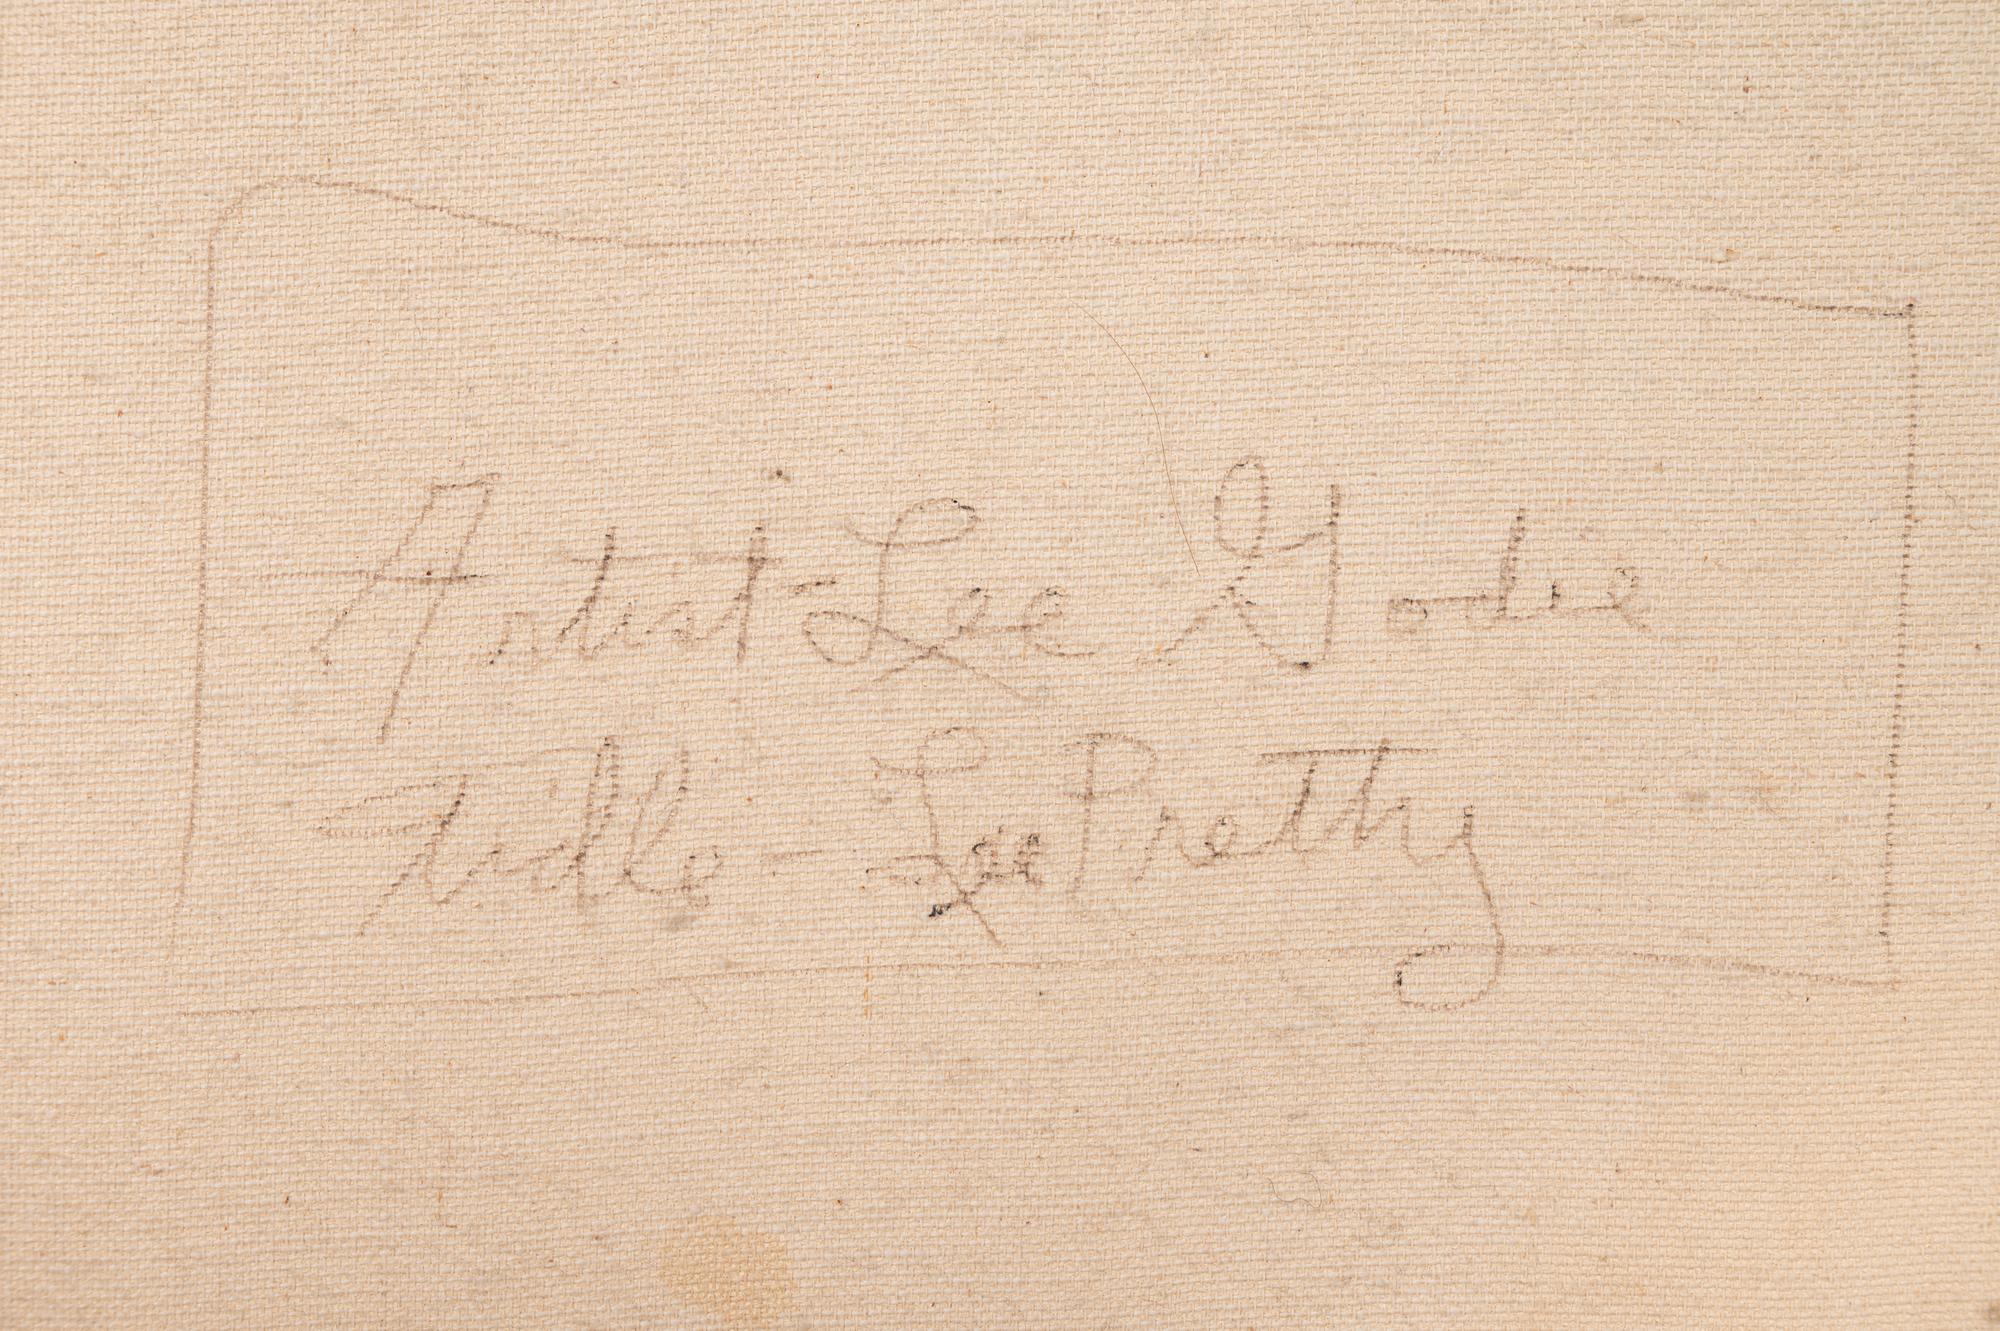 Artist - Lee Godie
Tidle - Lee Pretty